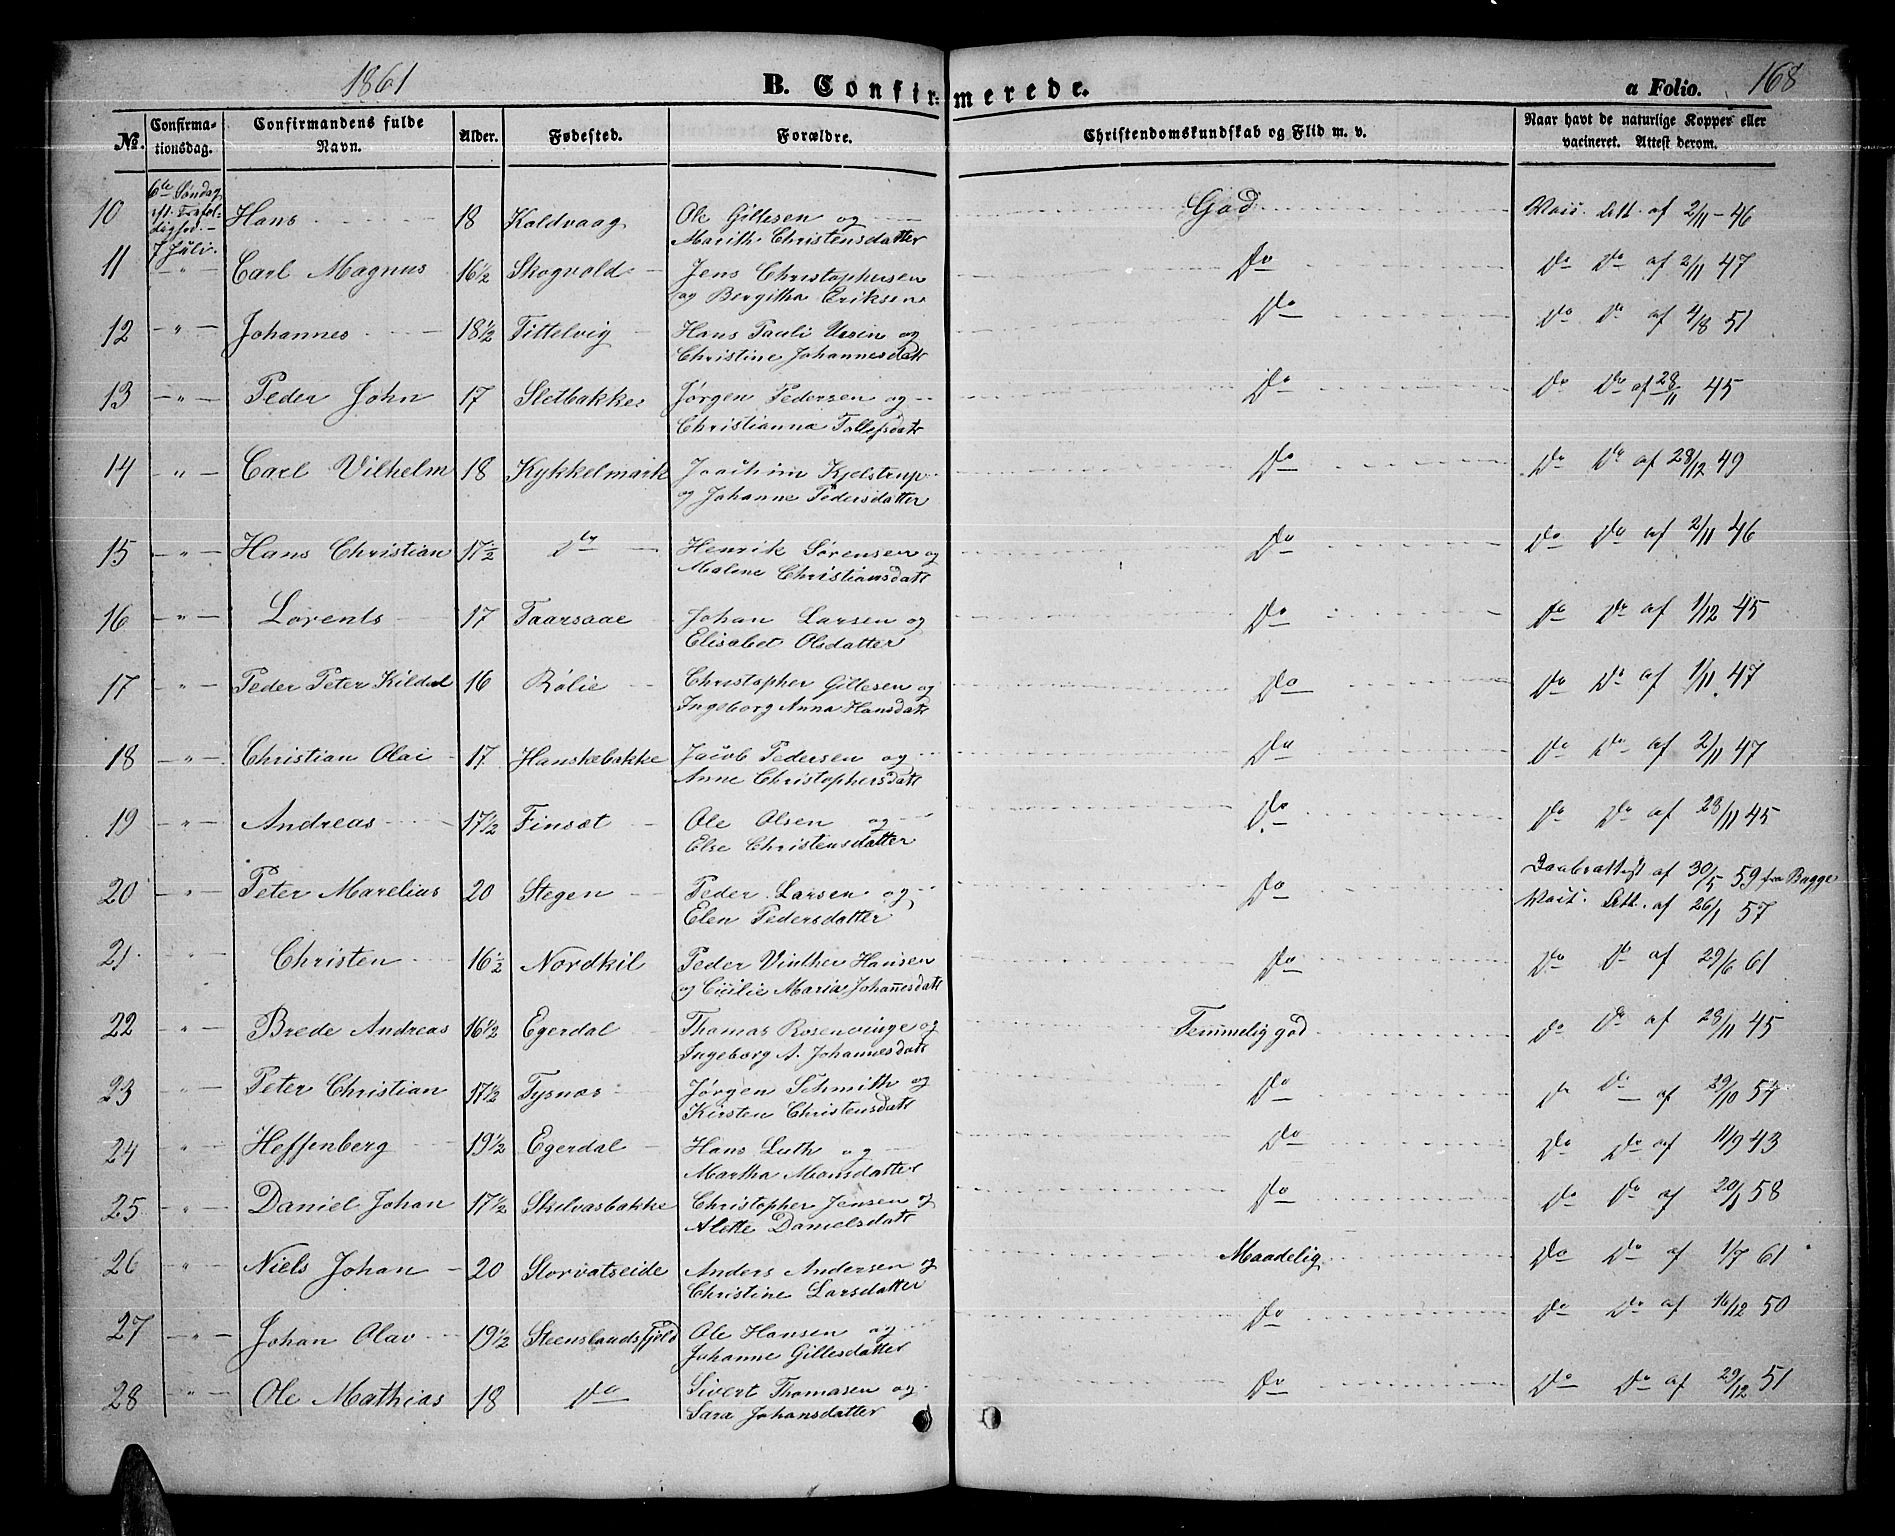 1861
B. Confirmerede.
a Folio. 168
No. Confirmationsdag. Confirmandens fulde Navn. Alder. Fødested. Forældre. Christendomskundskab og Flid m. v. Naar havt de naturlige Kopper eller vacineret. Attest derom.
10 6te Søndag eft. Trefoldighed. 7 Juli. Hans 18 Kaldvaag Ole Gillesen og God Att. af 2/11 - 46
Marith Christensdatter
11 - " - Carl Magnus 16 1/2 Skogvold Jens Christophersen Do Do Do af 2/11 47
og Bergitha Eriksen
12 - " - Johannes 18 1/2 Tittelvig Hans Pauli og Do Do Do af 4/8 51
Christine Johannesdatt
13 - " - Peder John 17 Sletbakke Jørgen Pedersen og Do Do Do af 28/11 45
Christianna Tollefsdatt
14 " - Carl Vilhelm 18 Kykkelmark Joachim Kjelstrup Do Do Do af 28/12 49
og Johanne Pedersdatter
15 - " - Hans Christian 17 1/2 Do Henrik Sørensen og Do Do Do af 2/11 46
Malene Christiansdatt
16 - " - Lorents 17 Taarsaae Johan Larsen og Do Do Do af 1/12 45
Elisabet Olsdatter
17 " - Peder Peter Kildal 16 Rølie Christopher Gillesen og Do Do Do af 1/11 47
Ingeborg Anna Hansdatt
18 - " - Christian Olai 17 Hanskebakke Jacob Pedersen og Do Do Do af 2/11 47
Anne Christophersdatt
19 " - Andreas 17 1/2 Finsæt Ole Olsen og Do Do Do af 28/11 45
Else Christensdatter
20 " - Peter Marelius 20 Stegen Peder Larsen og Do Daabsattest af 30/5 59 fra Bugge
Elen Pedersdatter Att. af 26/1 57
21 " Christen 16 1/2 Nordkil Peder Vinther Hansen Do Do Do af 29/6 61
og Cicilie Maria Johannesdatt
22 " - Brede Andreas 16 1/2 Egerdal Thomas Rosenvinge og Temmelig god Do Do af 28/11 45
Ingeborg A. Johannesdatt
23 " - Peter Christian 17 1/2 Tysnæs Jørgen Schmith og Do Do Do af 29/10 57
Kirsten Christensdatt
24 " - Heffenberg 19 1/2 Egerdal Hans Luth og Do Do Do af 11/9 43
Martha Monsdatter
25 - " - Daniel Johan 17 1/2 Skelvasbakke Christopher Jensen og Do Do Do af 20/1 58
Alette Danielsdatt
26 " - Niels Johan 20 Storvatseide Anders Andersen og Maadelig Do Do af 1/7 61
Christine Larsdatter
27 - " - Johan Olav 19 1/2 Steenslandsfjeld Ole Hansen og Do Do Do af 16/12 50
Johanne Gillesdatter
28 - " - Ole Mathias 18 Do Sivert Thomasen og Do Do Do af 29/12 51
Sara Johansdatter